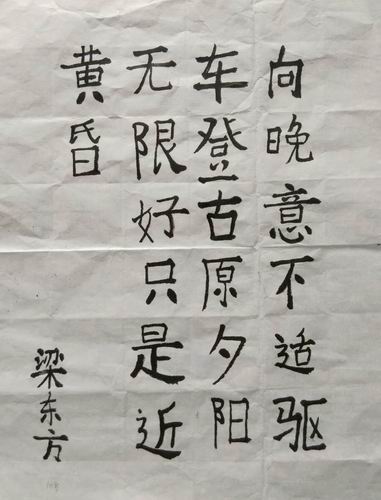 向晚意不适驱
车登古原夕阳
无限好只是近
黄昏
梁东方